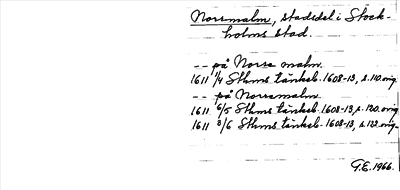 Norrmalm, stadsdel i Stock-
holms stad.
-- på Norre malm
1611 1/4 Sthms tänkeb. 1608-13, s. 110. orig.
-- på Norremalm
1611 6/5 Sthms tänkeb. 1608-13, s. 120. orig.
1611 3/6 Sthms tänkeb. 1608-13, s. 122. orig.
G.E. 1966.